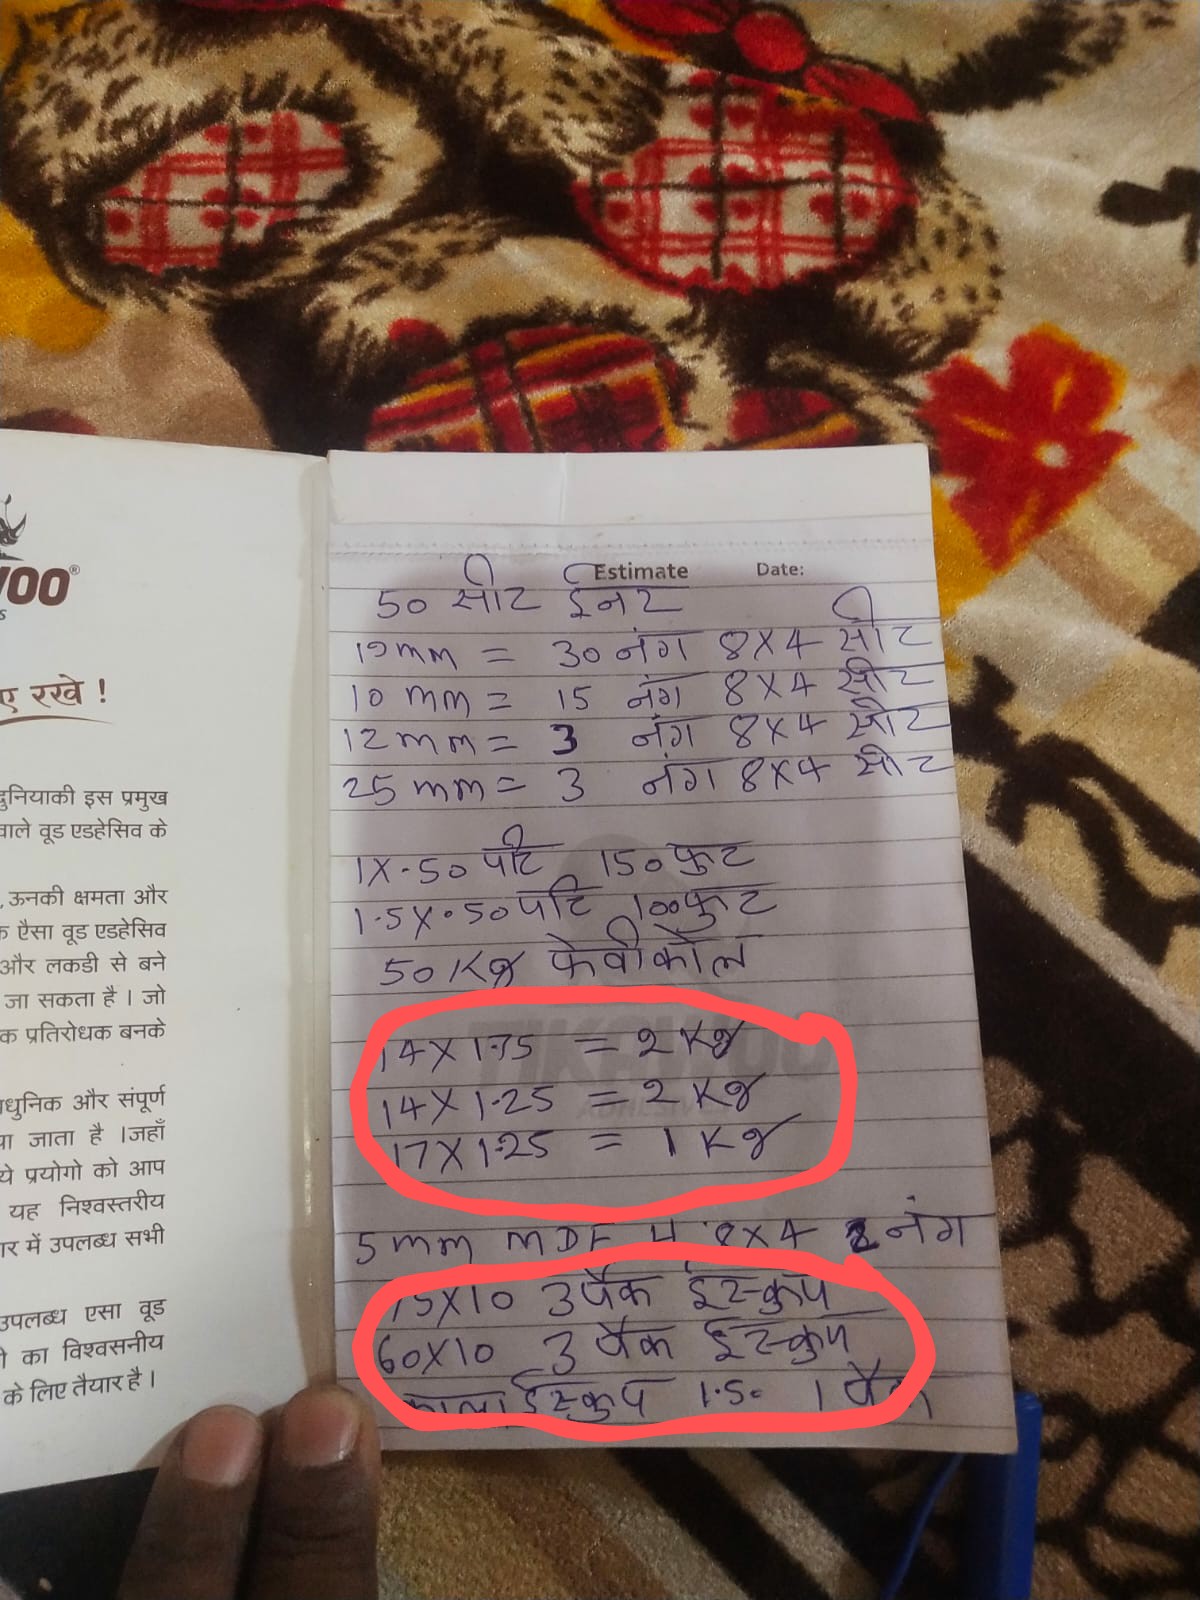 OO®
S
ए रखे !
दुनियाकी इस प्रमुख
वाले वूड एडहेसिव के
, ऊनकी क्षमता और
क ऐसा वूड एडहेसिव
और लकडी से बने
जा सकता है । जो
क प्रतिरोधक बनके
धुनिक और संपूर्ण
या जाता है ।जहाँ
ये प्रयोगो को आप
यह निश्वस्तरीय
ार में उपलब्ध सभी
उपलब्ध एसा वूड
ो का विश्वसनीय
के लिए तैयार है ।
Estimate Date:
50 सीट ईनट
19mm = 30 नंग 8X4 सीट
10 mm = 15 नंग 8X4 सीट
12mm = 3 नंग 8X4 सीट
25 mm = 3 नंग 8X4 सीट
1X.50 पटि 150 फुट
1.5X.50 पटि 100 फुट
50 Kg फेवीकोल
14X1.75 = 2 Kg
14X1.25 = 2 Kg
17X1.25 = 1 Kg
5mm MDF 8X4 2 नंग
75X10 3 पैक ईस्कुप
60X10 3 पैक ईस्कुप
काला ईस्कुप 1.50 1 पैक